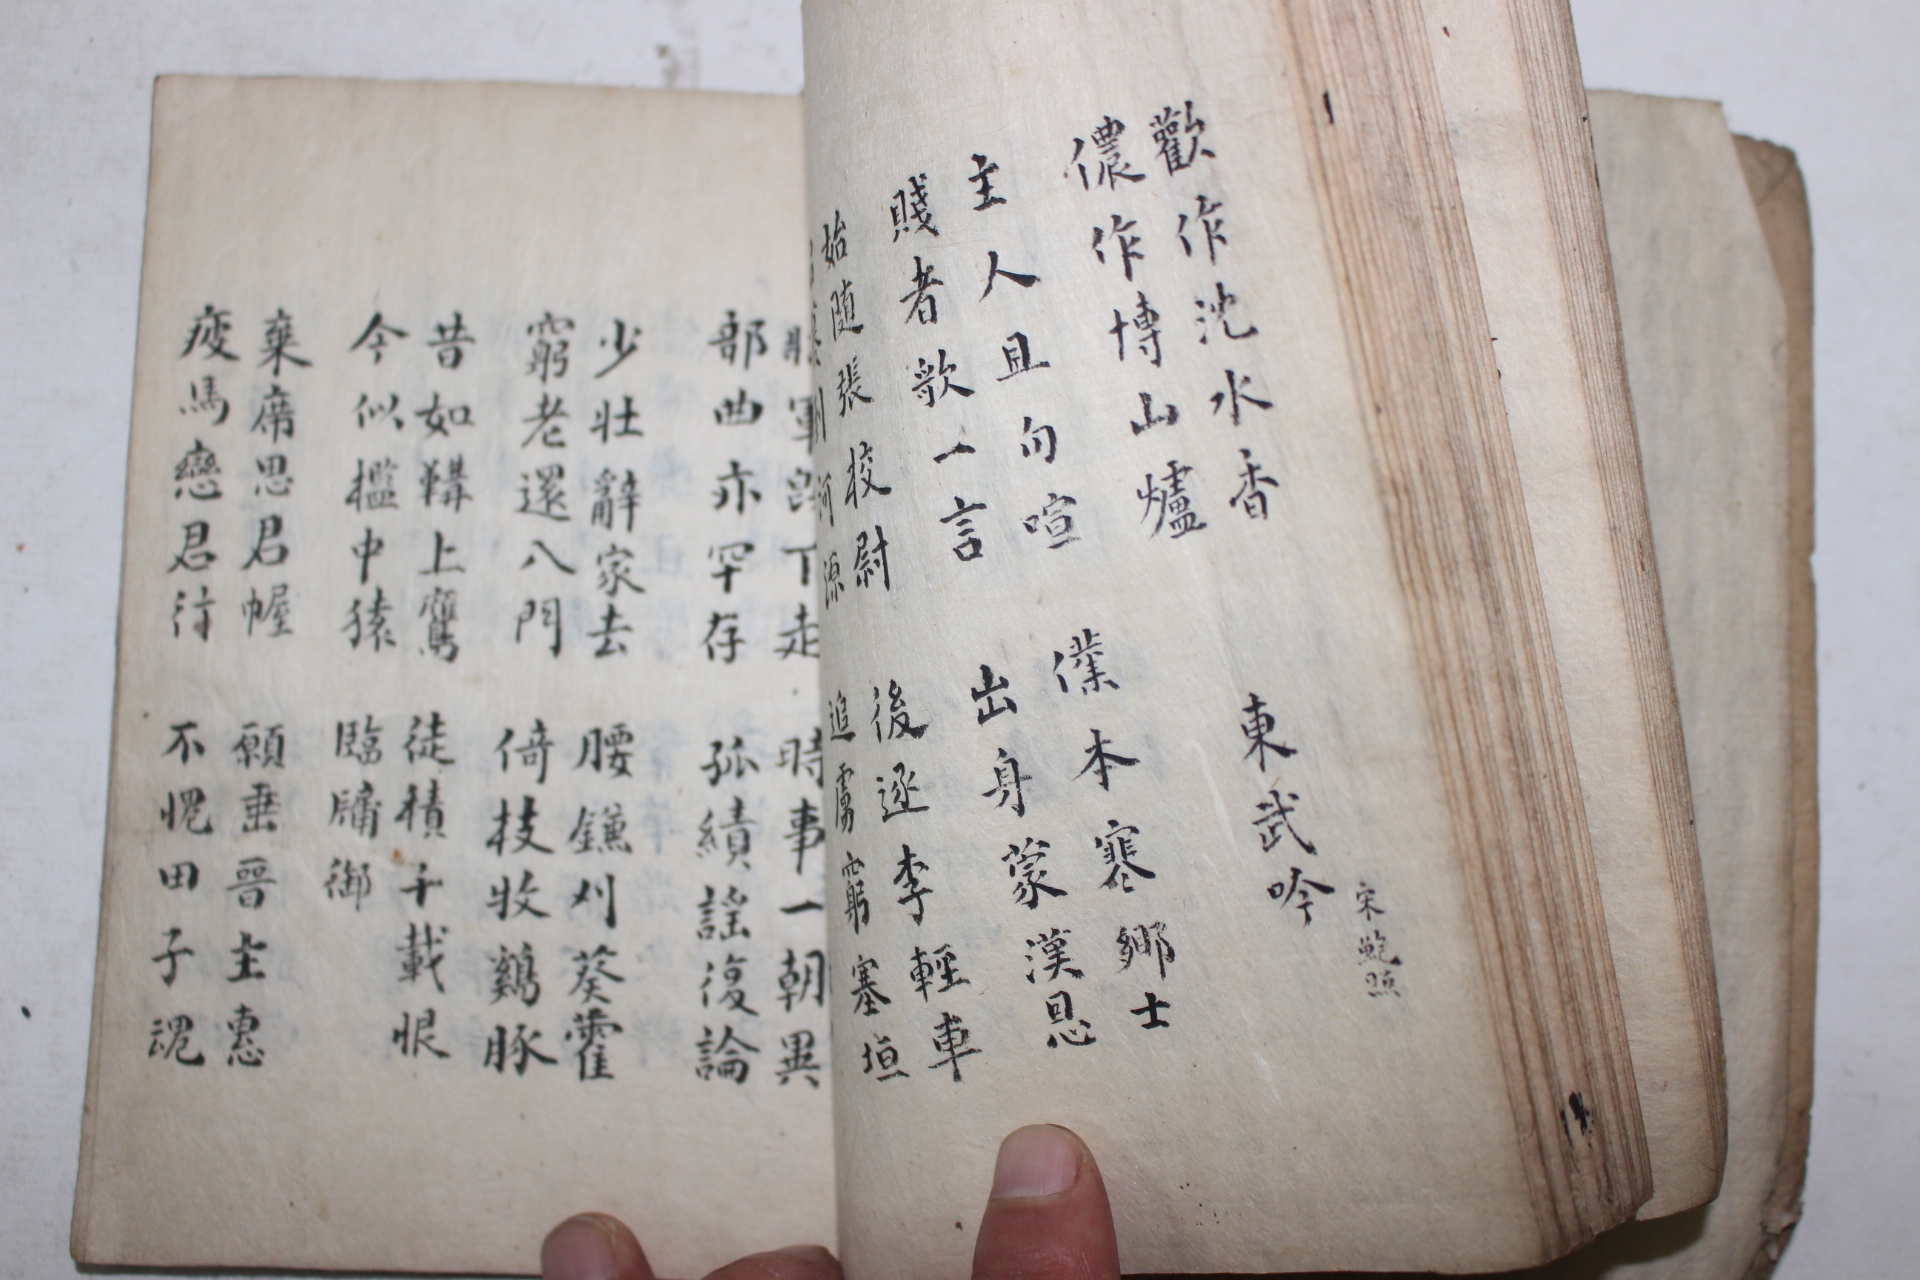 歡作沈水香
儂作博山爐
東武吟 宋鮑照
主人且勿喧
賤者歌一言
僕本寒鄉士
出身蒙漢恩
始随張校尉
河源
後逐李輕車
追虜窮塞垣
軍下走
部曲亦罕存
時事一朝異
孤績謠復論
少壯辭家去
窮老還八門
腰鐮刈葵藿
倚技牧鷄豚
昔如鞲上鷹
今似檻中猿
徒積千載恨
臨牖御
棄席思君幄
疲馬戀君行
願垂晉主惠
不愧田子魂